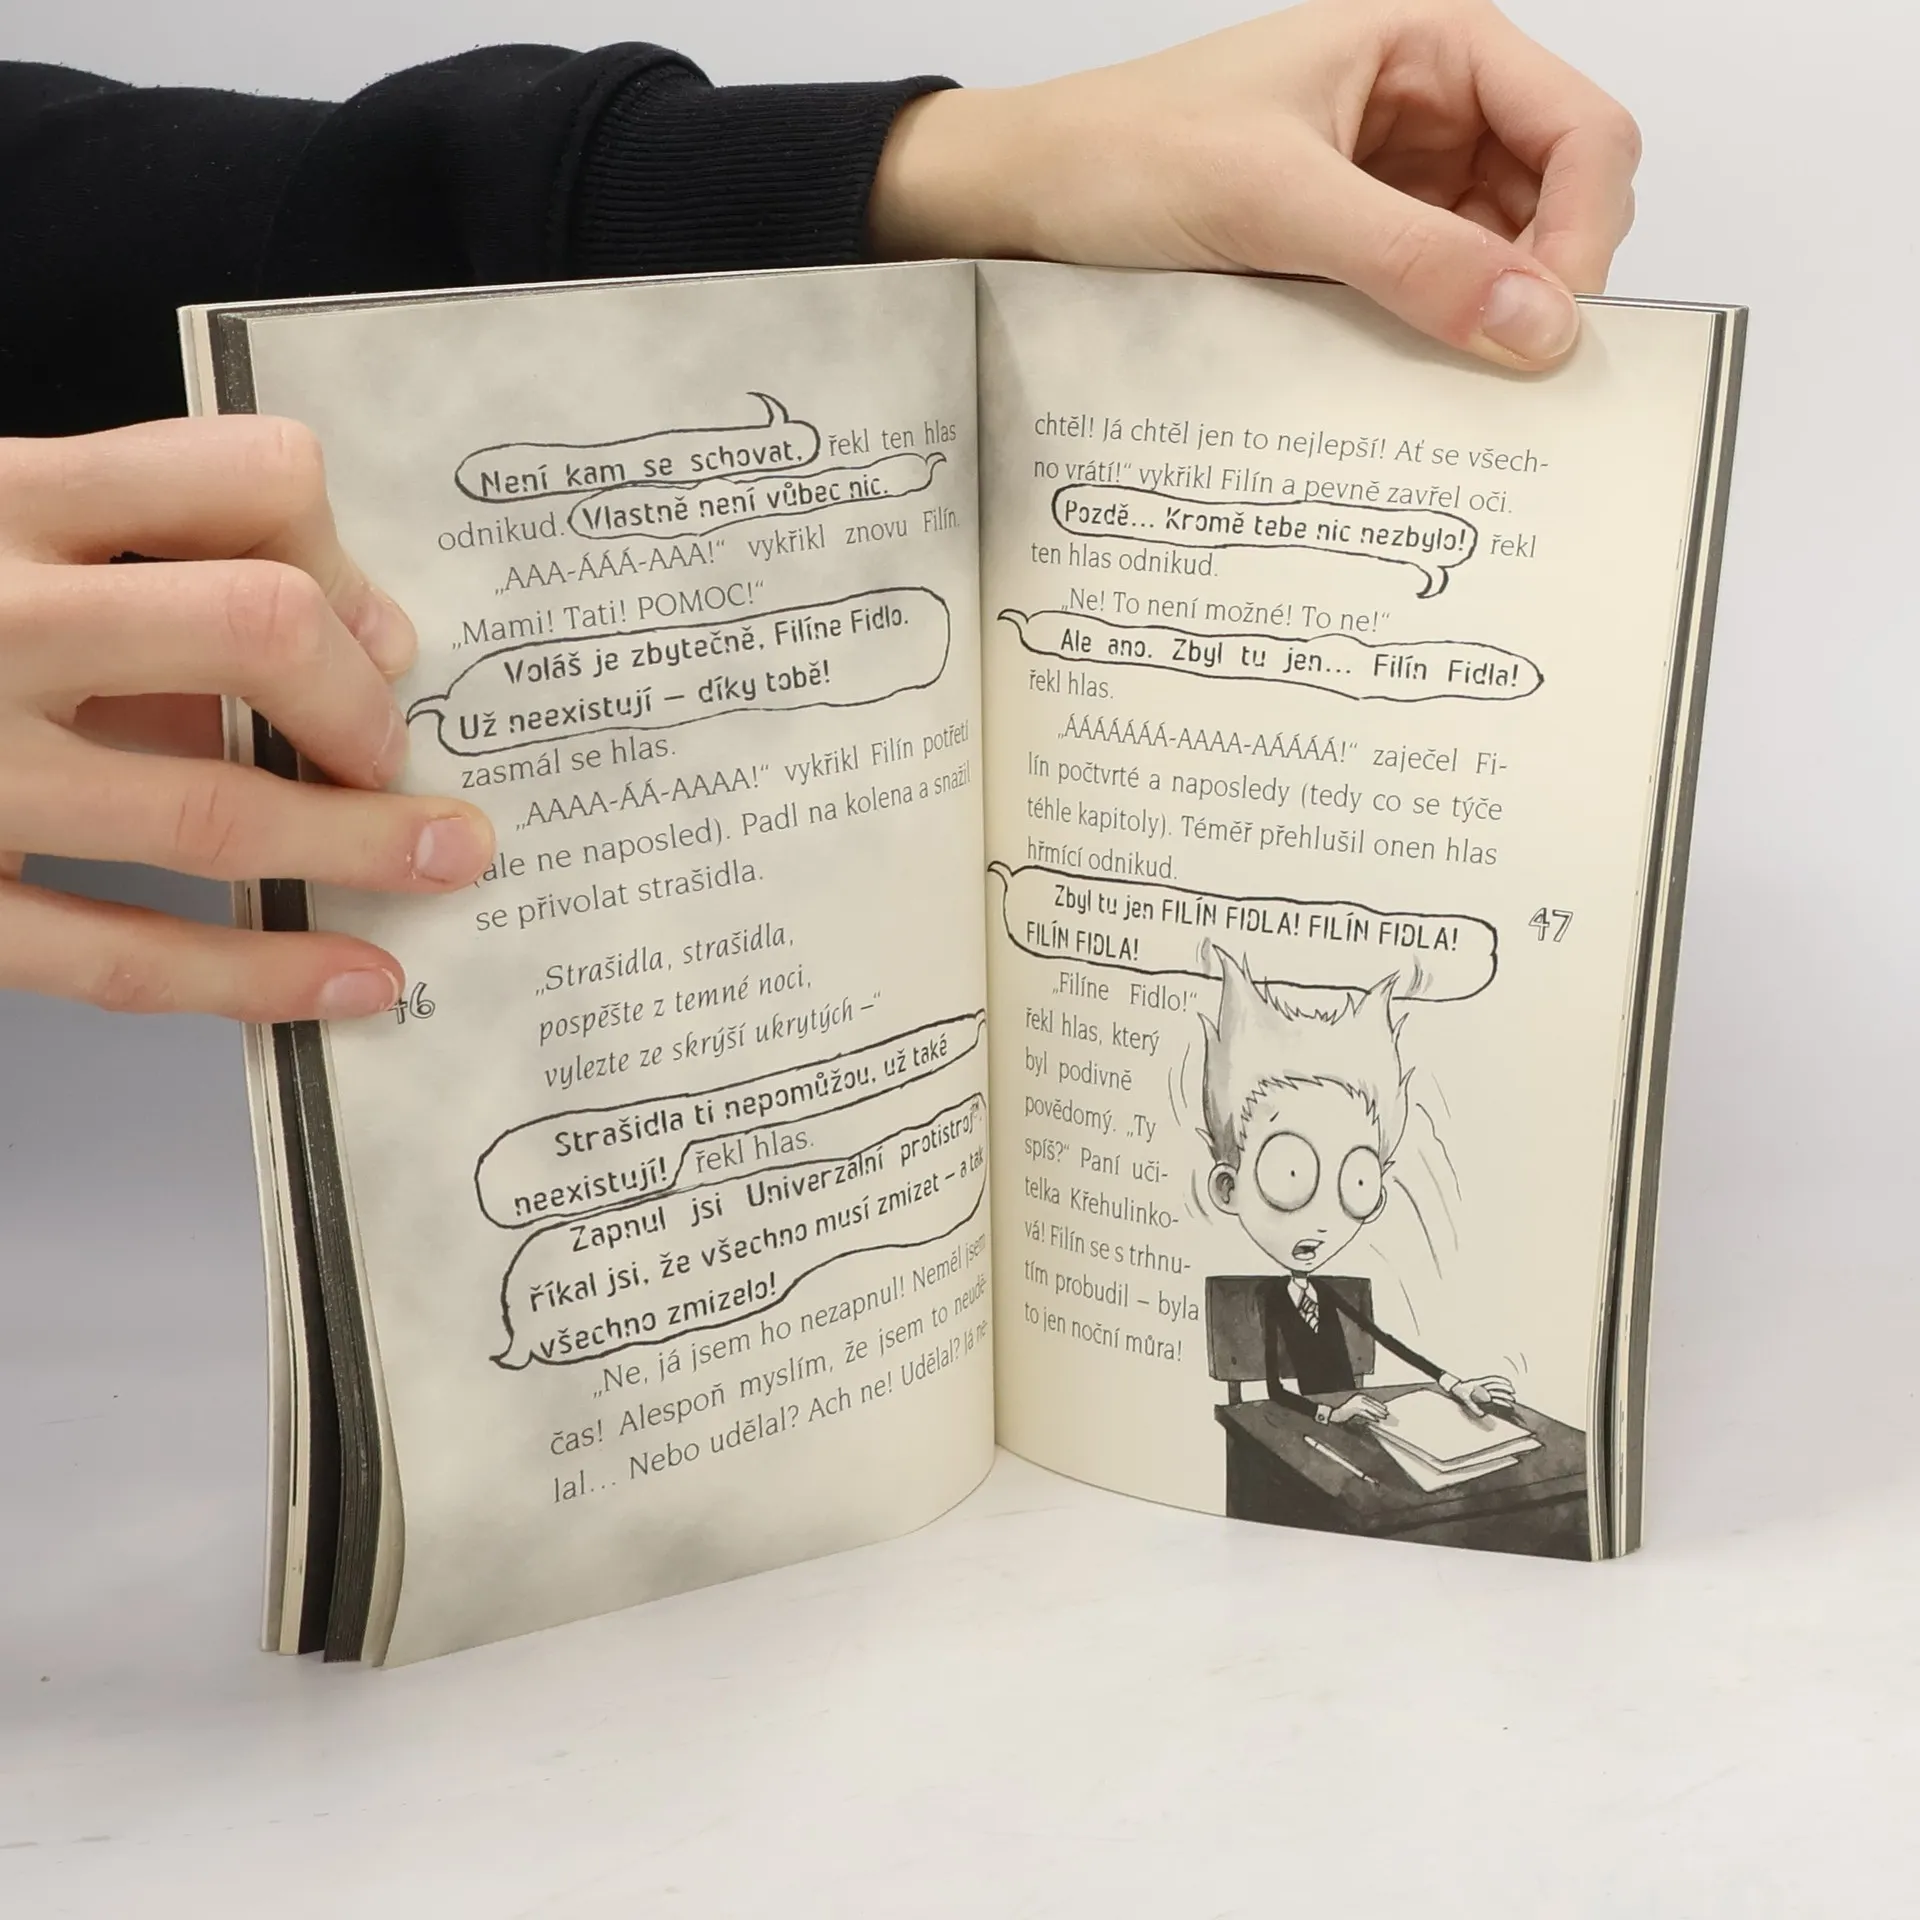 Není kam se schovat, řekl ten hlas
odnikud. Vlastně není vůbec nic.
„AAA-ÁÁÁ-AAA!“ vykřikl znovu Filín.
„Mami! Tati! POMOC!“
Voláš je zbytečně, Filíne Fidlo.
Už neexistují – díky tobě!
zasmál se hlas.
„AAAA-ÁÁ-AAAA!“ vykřikl Filín potřetí
(ale ne naposled). Padl na kolena a snažil
se přivolat strašidla.
„Strašidla, strašidla,
pospěšte z temné noci,
vylezte ze skrýší ukrytých –“
Strašidla ti nepomůžou, už také
neexistují! řekl hlas.
Zapnul jsi Univerzální protistroj™.
říkal jsi, že všechno musí zmizet – a tak
všechno zmizelo!
„Ne, já jsem ho nezapnul! Neměl jsem
čas! Alespoň myslím, že jsem to neudě-
lal... Nebo udělal? Ach ne! Udělal? Já ne-
46
chtěl! Já chtěl jen to nejlepší! Ať se všech-
no vrátí!“ vykřikl Filín a pevně zavřel oči.
Pozdě... Kromě tebe nic nezbylo! řekl
ten hlas odnikud.
„Ne! To není možné! To ne!“
Ale ano. Zbyl tu jen... Filín Fidla!
řekl hlas.
„ÁÁÁÁÁÁÁ-AAAA-AÁÁÁÁ!“ zaječel Fi-
lín počtvrté a naposledy (tedy co se týče
téhle kapitoly). Téměř přehlušil onen hlas
hřmící odnikud.
Zbyl tu jen FILÍN FIDLA! FILÍN FIDLA!
FILÍN FIDLA!
„Filíne Fidlo!“
řekl hlas, který
byl podivně
povědomý. „Ty
spíš?“ Paní uči-
telka Křehulinko-
vá! Filín se s trhnu-
tím probudil – byla
to jen noční můra!
47